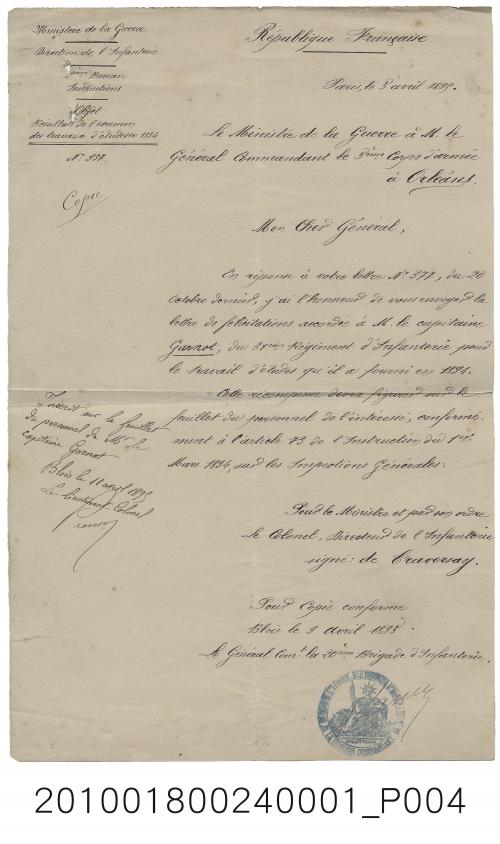 Ministère de la Guerre
Direction de l'Infanterie
Bureau
Instructions
Objet
Résultats de l'examen
des travaux d'études en 1894
N° 937
Copie
République Française
Paris, le 5 avril 1895.
Le Ministre de la Guerre à M. le
Général Commandant le 5ème Corps d'armée
à Orléans.
Mon Cher Général,
En réponse à votre lettre N° 377, du 20
Octobre dernier, j'ai l'honneur de vous envoyer la
lettre de félicitations accordée à M. le capitaine
Garnot, du Régiment d'Infanterie pour
le travail d'études qu'il a fourni en 1894.
Cette récompense devra figurer sur le
feuillet du personnel de l'intéressé, conformé-
ment à l'article 73 de l'Instruction du 1er
Mars 1894, sur les Inspections Générales.
Pour le Ministre et par son ordre
le Colonel, Directeur de l'Infanterie
signé: de Traversay.
Inscrit sur le feuillet
du personnel de Mr le
Capitaine Garnot
Blois le 11 avril 1895
Le lieutenant Colonel
Pour Copie conforme
Blois le 9 avril 1895.
le Général Comt la 20ème Brigade d'Infanterie.
201001800240001_P004